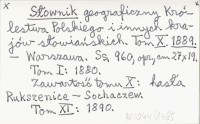 x Słownik geograficzny Kró-
lestwa Polskiego i innych kra-
jów słowiańskich. Tom X. 1889.
— Warszawa. Ss 960, opr, cm 27 x 19.
Tom I: 1880.
Zawartość Tomu X: hasła
Rukszenice – Sochaczew.
Tom XI: 1890.